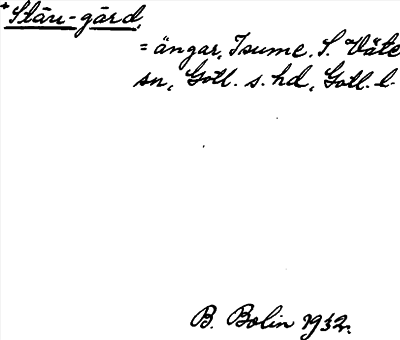 +Stäu-gärd,
= ängar, Isume, S. Väte
sn, Gotl. s. hd, Gotl. l.
B. Bolin 1932.